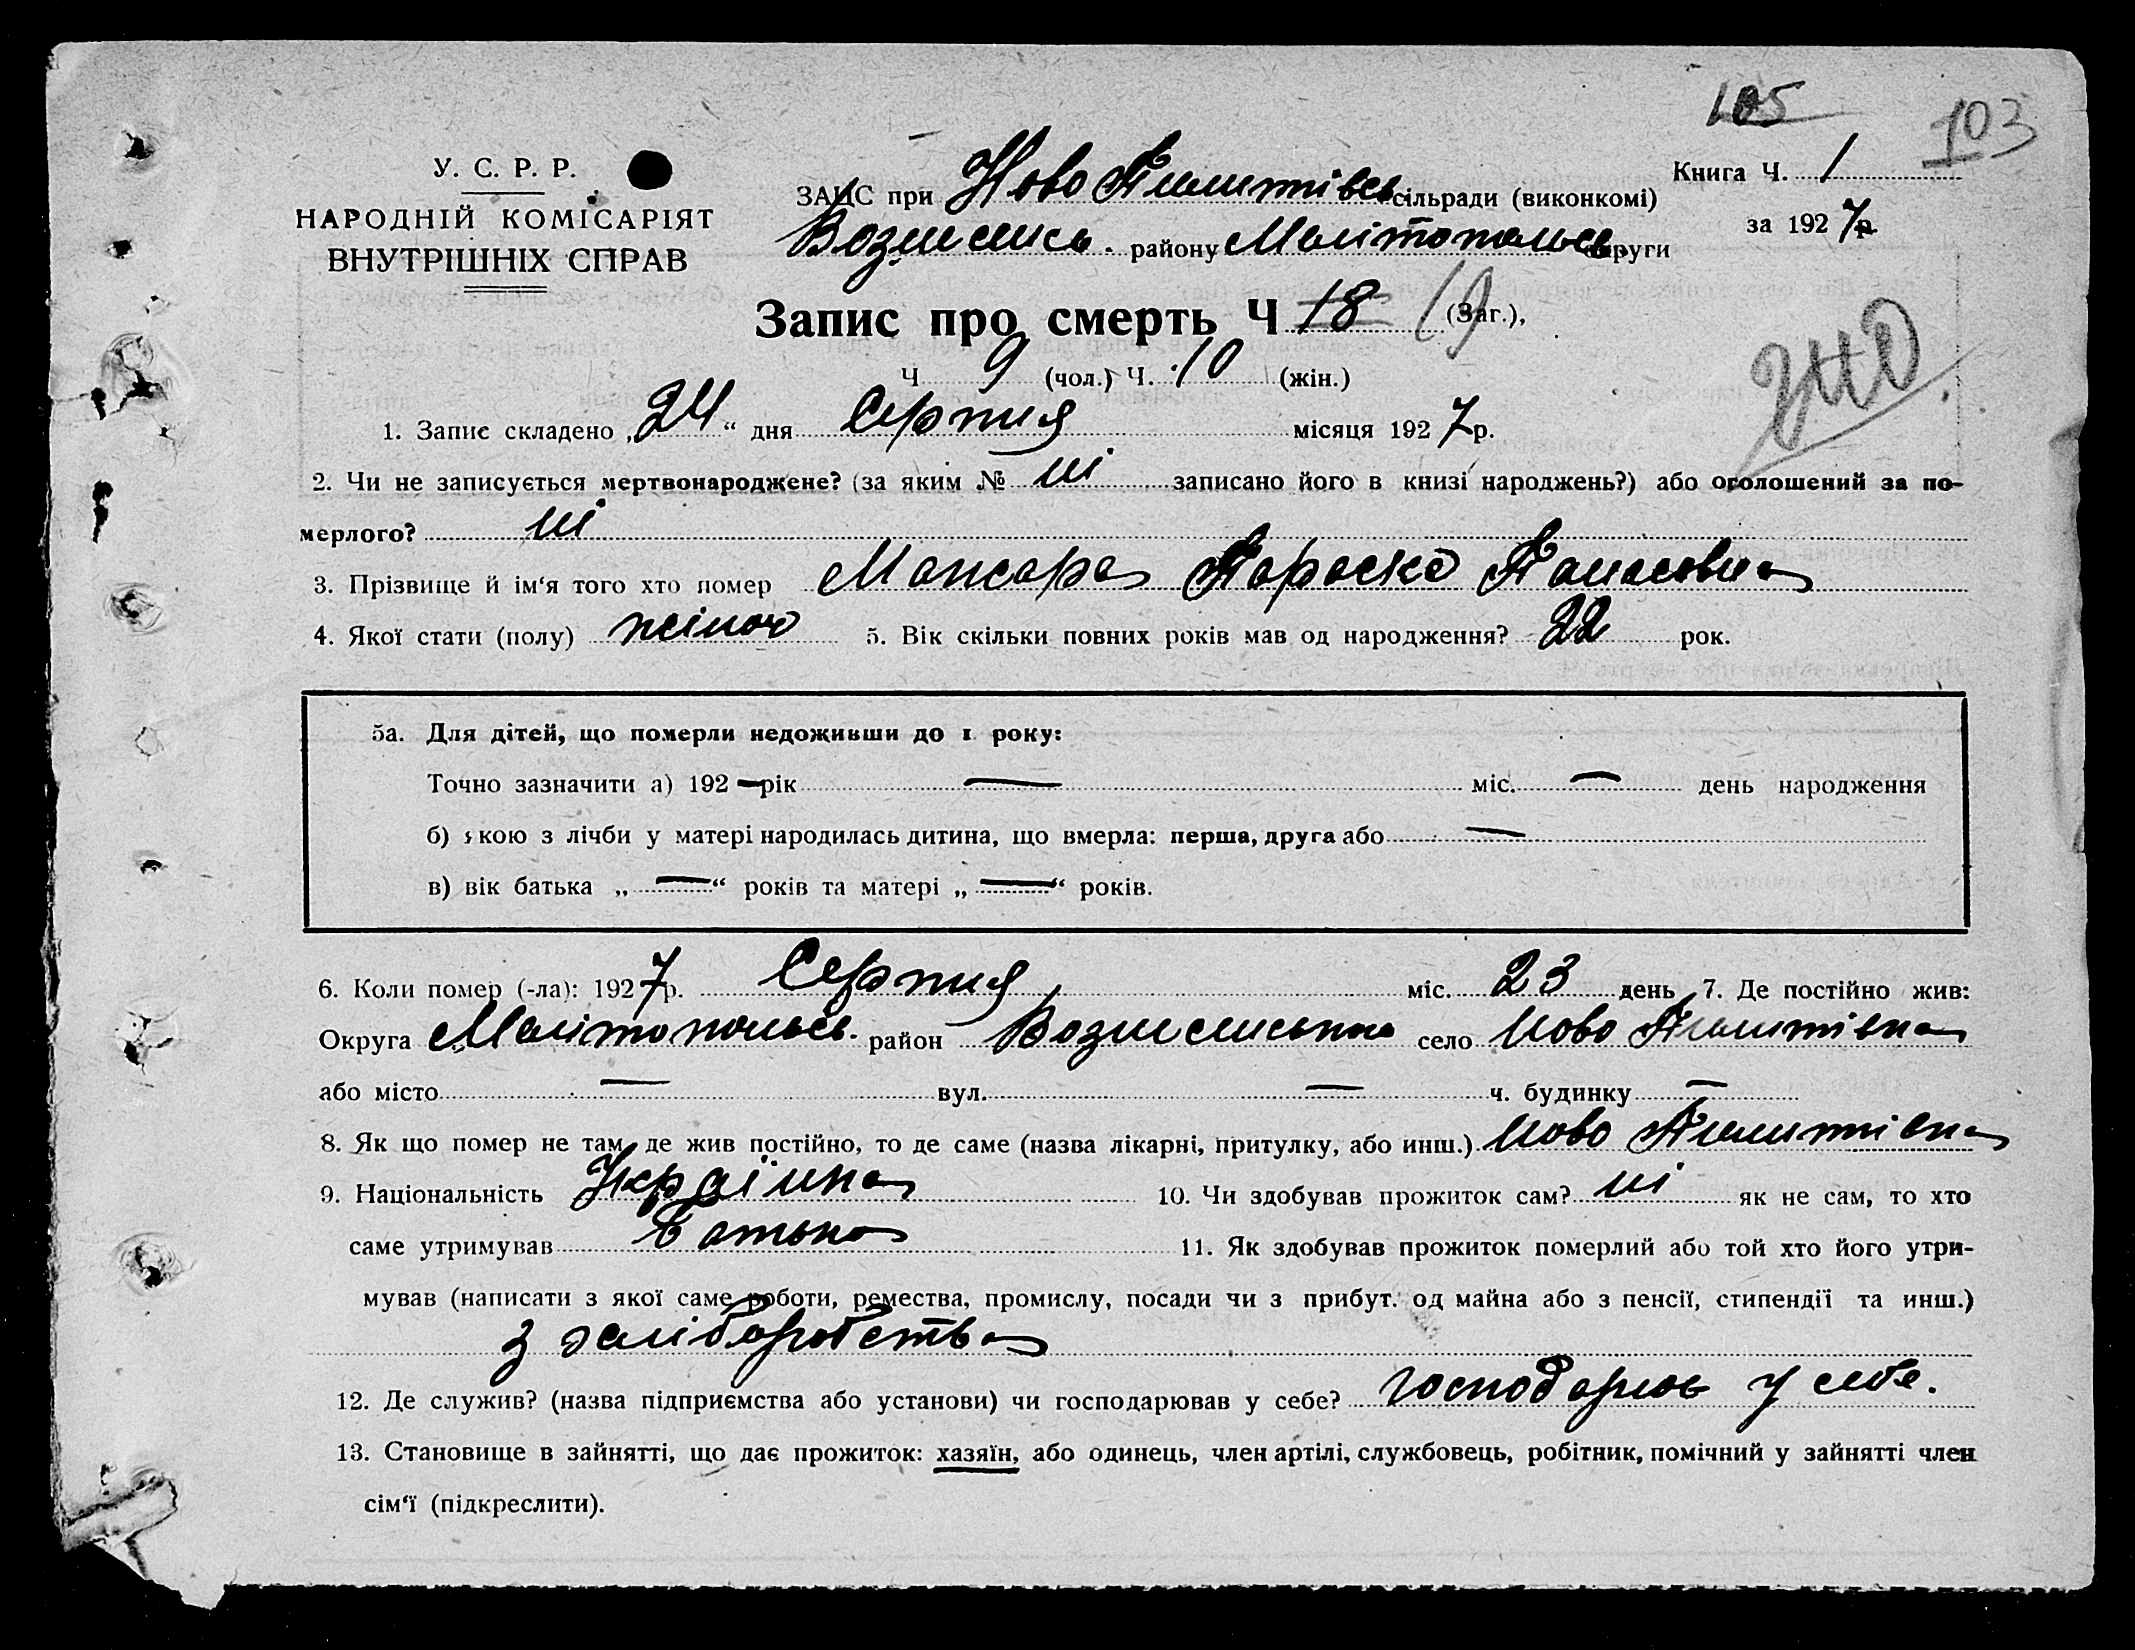 105
103
У. С. Р. Р.
НАРОДНІЙ КОМІСАРІЯТ
ВНУТРІШНІХ СПРАВ
ЗАЦС при Ново Пилипівсь сільради (виконкомі)
Вознесенсь. району Мелітопольсь. округи
Книга Ч. 1
за 1927 р.
Запис про смерть Ч 18 19 (Заг.),
Ч 9 (чол.) Ч. 10 (жін.)
1. Запис складено „24“ дня Серпня місяця 1927 р.
2. Чи не записується мертвонароджене? (за яким № ні записано його в книзі народжень?) або оголошений за по-
мерлого? ні
3. Прізвище й ім‘я того хто помер Мансара Параска Панасовна
4. Якої стати (полу) жіноч 5. Вік скільки повних років мав од народження? 22 рок.
5а. Для дітей, що померли недоживши до 1 року:
Точно зазначити а) 192 — рік — міс. — день народження
б) якою з лічби у матері народилась дитина, що вмерла: перша, друга або —
в) вік батька „—“ років та матері „—“ років.
6. Коли помер (-ла): 1927 р. Серпня міс. 23 день 7. Де постійно жив:
Округа Мелітопольсь. район Вознесенська село Ново Пилипівка
або місто — вул. — ч. будинку —
8. Як що помер не там, де жив постійно, то де саме (назва лікарні, притулку, або инш.) Ново Пилипівка
9. Національність Україінка 10. Чи здобував прожиток сам? ні як не сам, то хто
саме утримував Батько 11. Як здобував прожиток померлий або той хто його утри-
мував (написати з якої саме роботи, ремества, промислу, посади чи з прибут. од майна або з пенсії, стипендії та инш.)
з хліборобства
12. Де служив? (назва підприємства або установи) чи господарював у себе? господарює у себе.
13. Становище в зайнятті, що дає прожиток: хазяїн, або одинець, член артілі, службовець, робітник, помічний у зайнятті член
сім‘ї (підкреслити).